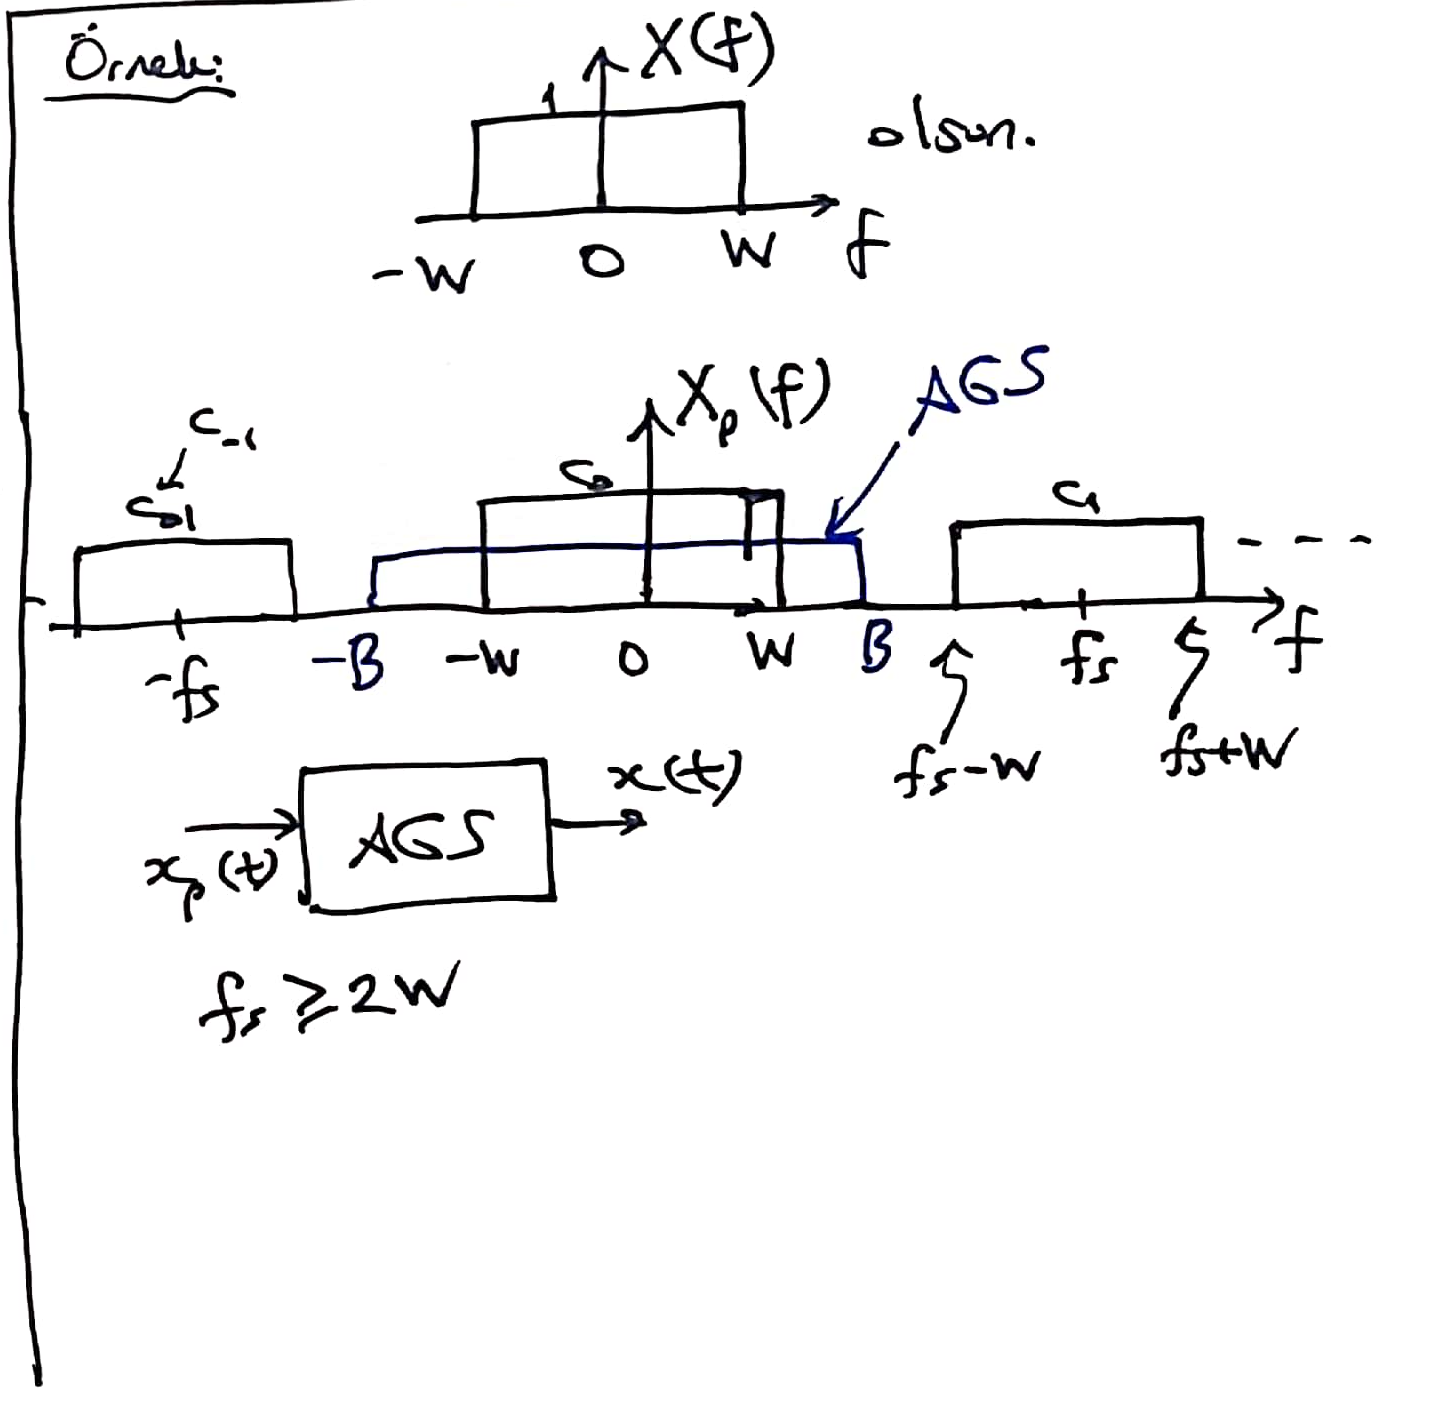 Örnek:
X(f)
1
olsun.
-W 0 W f
Xp(f)
AGS
C-1
C0
C1
- - -
-fs -B -W 0 W B fs f
fs-W
fs+W
xp(t) AGS x(t)
fs ≥ 2W